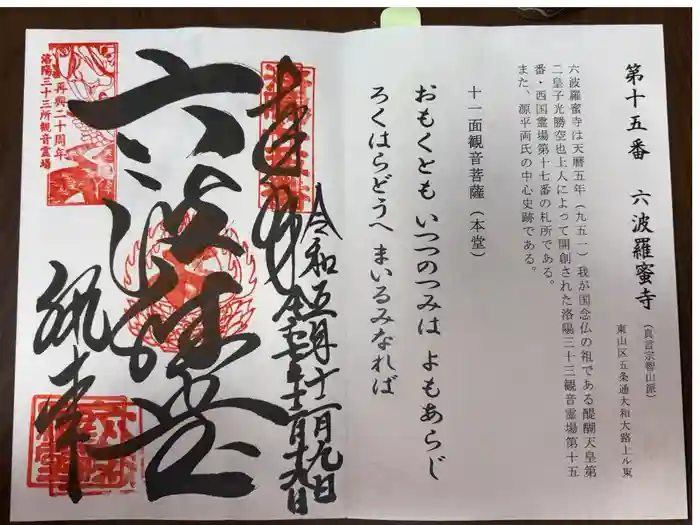 第十五番　六波羅蜜寺
（真言宗智山派）
東山区五条通大和大路上ル東
六波羅蜜寺は天暦五年（九五一）我が国念仏の祖である醍醐天皇第
二皇子光勝空也上人によって開創された洛陽三十三観音霊場第十五
番・西国霊場第十七番の札所である。
また、源平両氏の中心史跡である。
十一面観音菩薩（本堂）
おもくとも いつつのつみは よもあらじ
ろくはらどうへ まいるみなれば
奉拝
令和五年十一月九日
六波羅堂
再興二十周年
洛陽三十三所観音霊場